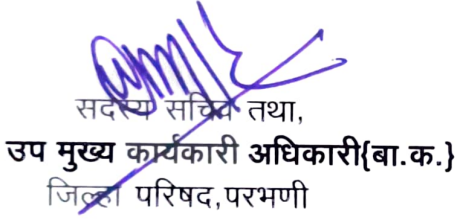 सदस्य सचिव तथा,
उप मुख्य कार्यकारी अधिकारी{बा.क.}
जिल्हा परिषद,परभणी